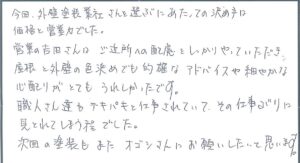 今回、外壁塗装業社さんを選ぶにあたっての決め手は
価格と営業力でした。
営業の吉田さんは ご近所への配慮もしっかりやっていただき、
屋根と外壁の色決めでも的確なアドバイスや細やかな
心配りがとてもうれしかったです。
職人さん達もテキパキと仕事されていて、その仕事ぶりに
見とれてしまう程でした。
次回の塗装もまたオゴシさんにお願いしたいと思います。